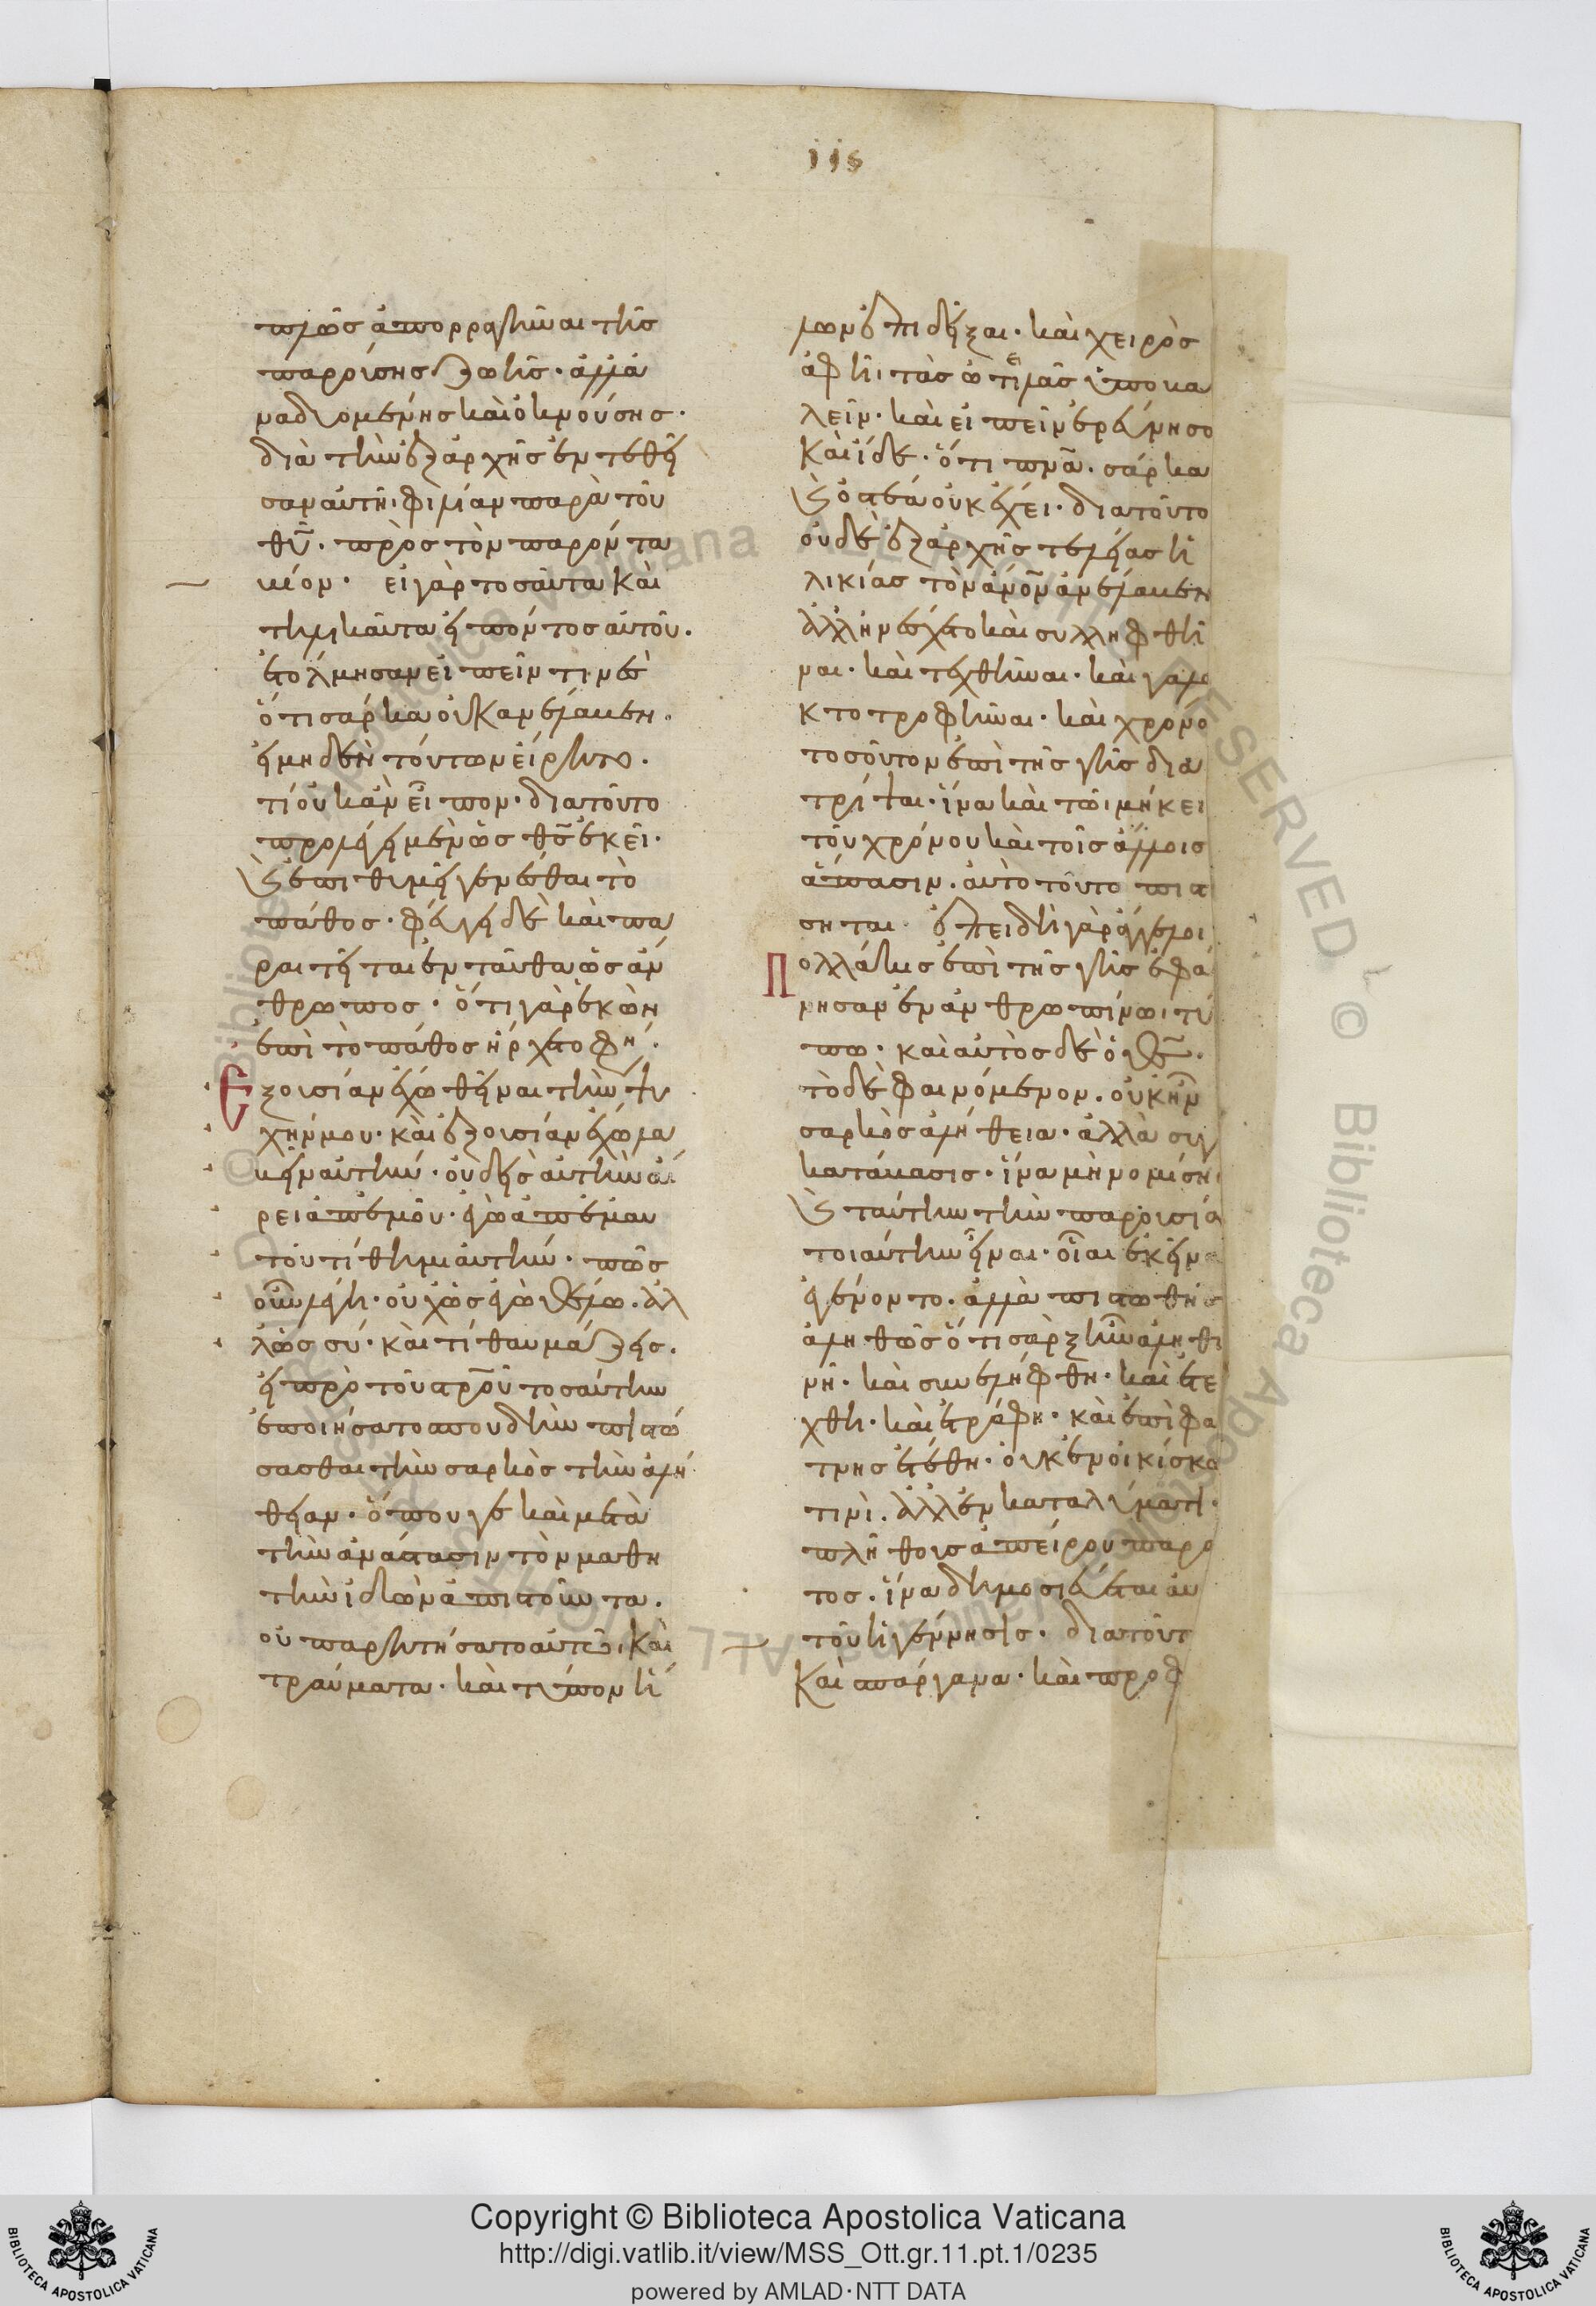 115
πλῶς ἀπορραγῆναι τῆς
παρούσης ζωῆς· ἀλλὰ
ναδυομένης καὶ ὀκνούσης·
διὰ τὴν ἐξ ἀρχῆς ἐντεθεῖ
σαν αὐτῇ φιλίαν παρὰ τοῦ
θῦ· πρὸς τὸν παρόντα
βίον· εἰ γὰρ τοσαῦτα καὶ
τηλικαῦτα εἰπόντος αὐτοῦ·
ἐτόλμησαν εἰπεῖν τινὲς
ὅτι σάρκα οὐκ ἀνέλαβεν·
εἰ μηδὲν τούτων εἴρητο·
τί οὐκ ἂν εἶπον· διατοῦτο
προλέγει μὲν ὡς θς ἐκεῖ·
καὶ ἐπιθυμεῖ γενέσθαι τὸ
πάθος· φεύγει δὲ καὶ πα
ραιτεῖται ἐνταῦθα ὡς ἄν
θρωπος· ὅτι γὰρ ἑκὼν
ἐπὶ τὸ πάθος ἤρχετο φη·
Ἐξουσίαν ἔχω θεῖναι τὴν ψυ
χήν μου· καὶ ἐξουσίαν ἔχω λα
βεῖν αὐτήν· οὐδεὶς αὐτὴν αἴ
ρει ἀπ' ἐμοῦ· ἐγὼ ἀπ' ἐμαυ
τοῦ τίθημι αὐτήν· πῶς
οὖν λέγει· οὐχ ὡς ἐγὼ θέλω· ἀλ
λ' ὡς σύ· καὶ τί θαυμάζεις·
εἰ πρὸ τοῦ στροῦ τοσαύτην
ἐποιήσατο σπουδὴν πιστώ
σασθαι τὴν σαρκὸς τὴν ἀλή
θειαν· ὅπου γε καὶ μετὰ
τὴν ἀνάστασιν τὸν μαθη
τὴν ἰδὼν ἀπιστοῦντα·
οὐ παρῃτήσατο αὐτῷ καὶ
τραύματα· καὶ τύπον ἥ
λων ἐπιδεῖξαι· καὶ χειρὸς
ἁφῇ τὰς ὠτειλὰς ὑποβα
λεῖν· καὶ εἰπεῖν ἐρεύνησο
καὶ ἴδε· ὅτι πνᾶ· σάρκα
καὶ ὀστέα οὐκ ἔχει· διατοῦτο
οὐδὲ ἐξ ἀρχῆς τελείας ἡ
λικίας τὸν ἄνον ἀνέλαβεν
ἀλλ' ἠνέσχετο καὶ συλληφθῆ
ναι· καὶ τεχθῆναι· καὶ γαλα
κτοτροφῆναι· καὶ χρόνο
τοσοῦτον ἐπὶ τῆς γῆς δια
τρίψαι· ἵνα καὶ τῶ μήκει
τοῦ χρόνου καὶ τοῖς ἄλλοις
ἅπασιν· αὐτὸ τοῦτο πιστ
σηται· ἐπειδὴ γὰρ ἄγγελοι
Πολλάκις ἐπὶ τῆς γῆς ἐφά
νησαν ἐν ἀνθρωπίνωι τύ
πω· καὶ αὐτὸς δὲ ὁ θς·
τὸ δὲ φαινόμενον· οὐκ ἦν
σαρκὸς ἀλήθεια· ἀλλὰ συγ
κατάβασις· ἵνα μὴ νομίσηι
καὶ ταύτην τὴν παρουσία
τοιαύτην εἶναι· οἷαι ἐκεῖν
ἐγένοντο· ἀλλὰ πιστωθῆς
ἀληθῶς ὅτι σὰρξ ἦν ἀληθι
νή· καὶ συνελήφθη· καὶ ἐτέ
χθη· καὶ ἐτράφη· καὶ ἐπὶ φά
τνης ἐτέθη· οὐκ ἐν οἰκίσκω
τινὶ· ἀλλ' ἐν καταλύματι·
πλήθους ἀπείρου παρο
τος· ἵνα δημοσιεύεται αυ
τοῦ ἡ γέννησις· διατοῦτ
καὶ σπάργανα· καὶ προφ
Copyright © Biblioteca Apostolica Vaticana
http://digi.vatlib.it/view/MSS_Ott.gr.11.pt.1/0235
powered by AMLAD·NTT DATA